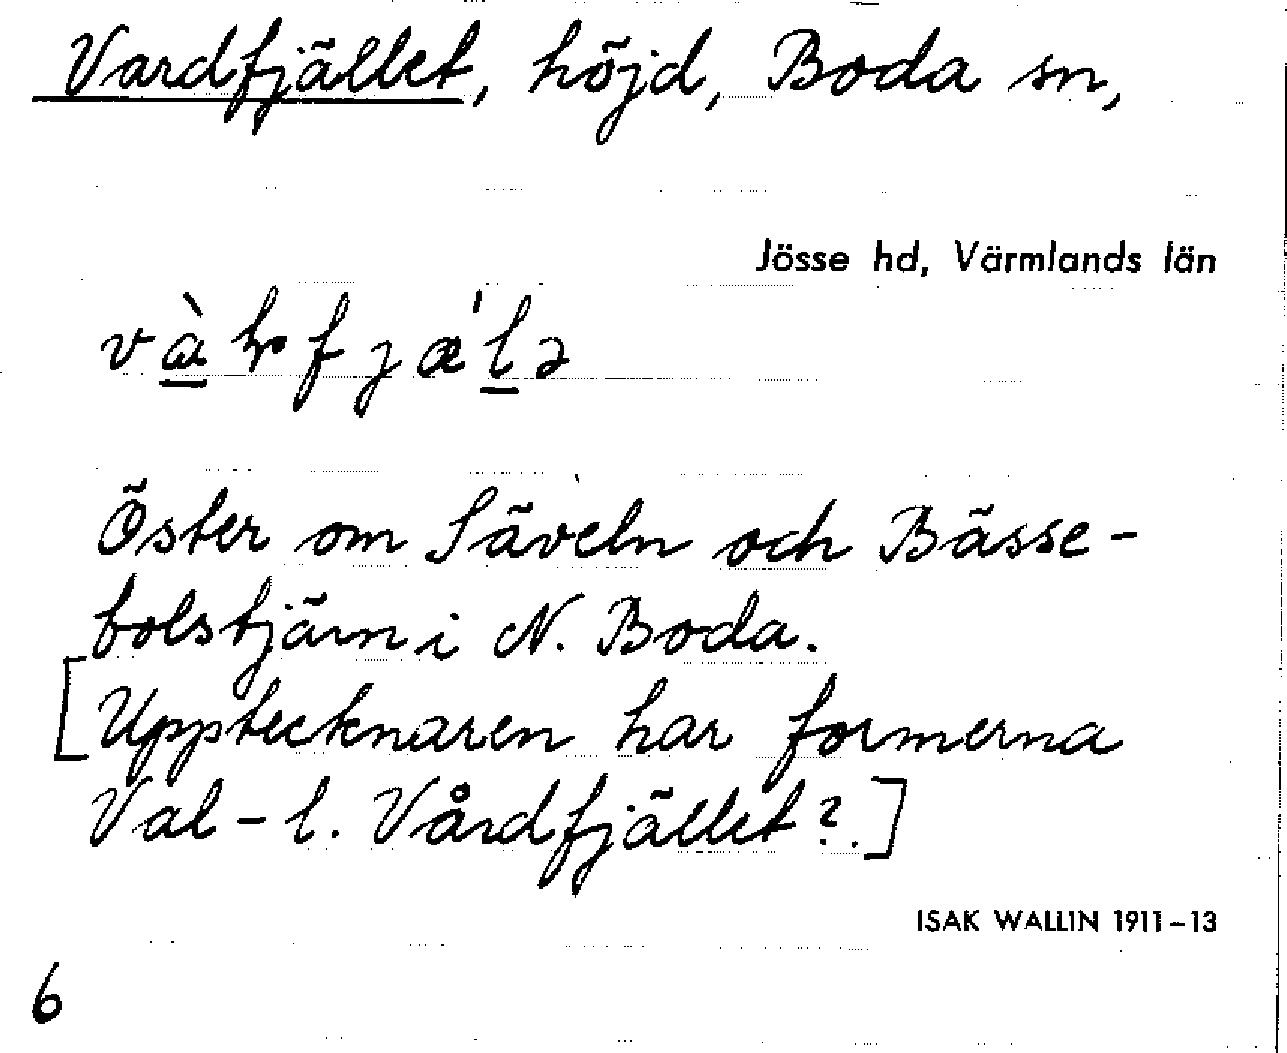 Vardfjället, höjd, Boda sn,
Jösse hd, Värmlands län
Öster om Säveln och Bässe-
bolstjärn i N. Boda.
[Upptecknaren har formerna
Val- l. Vårdfjället?.]
ISAK WALLIN 1911-13
6